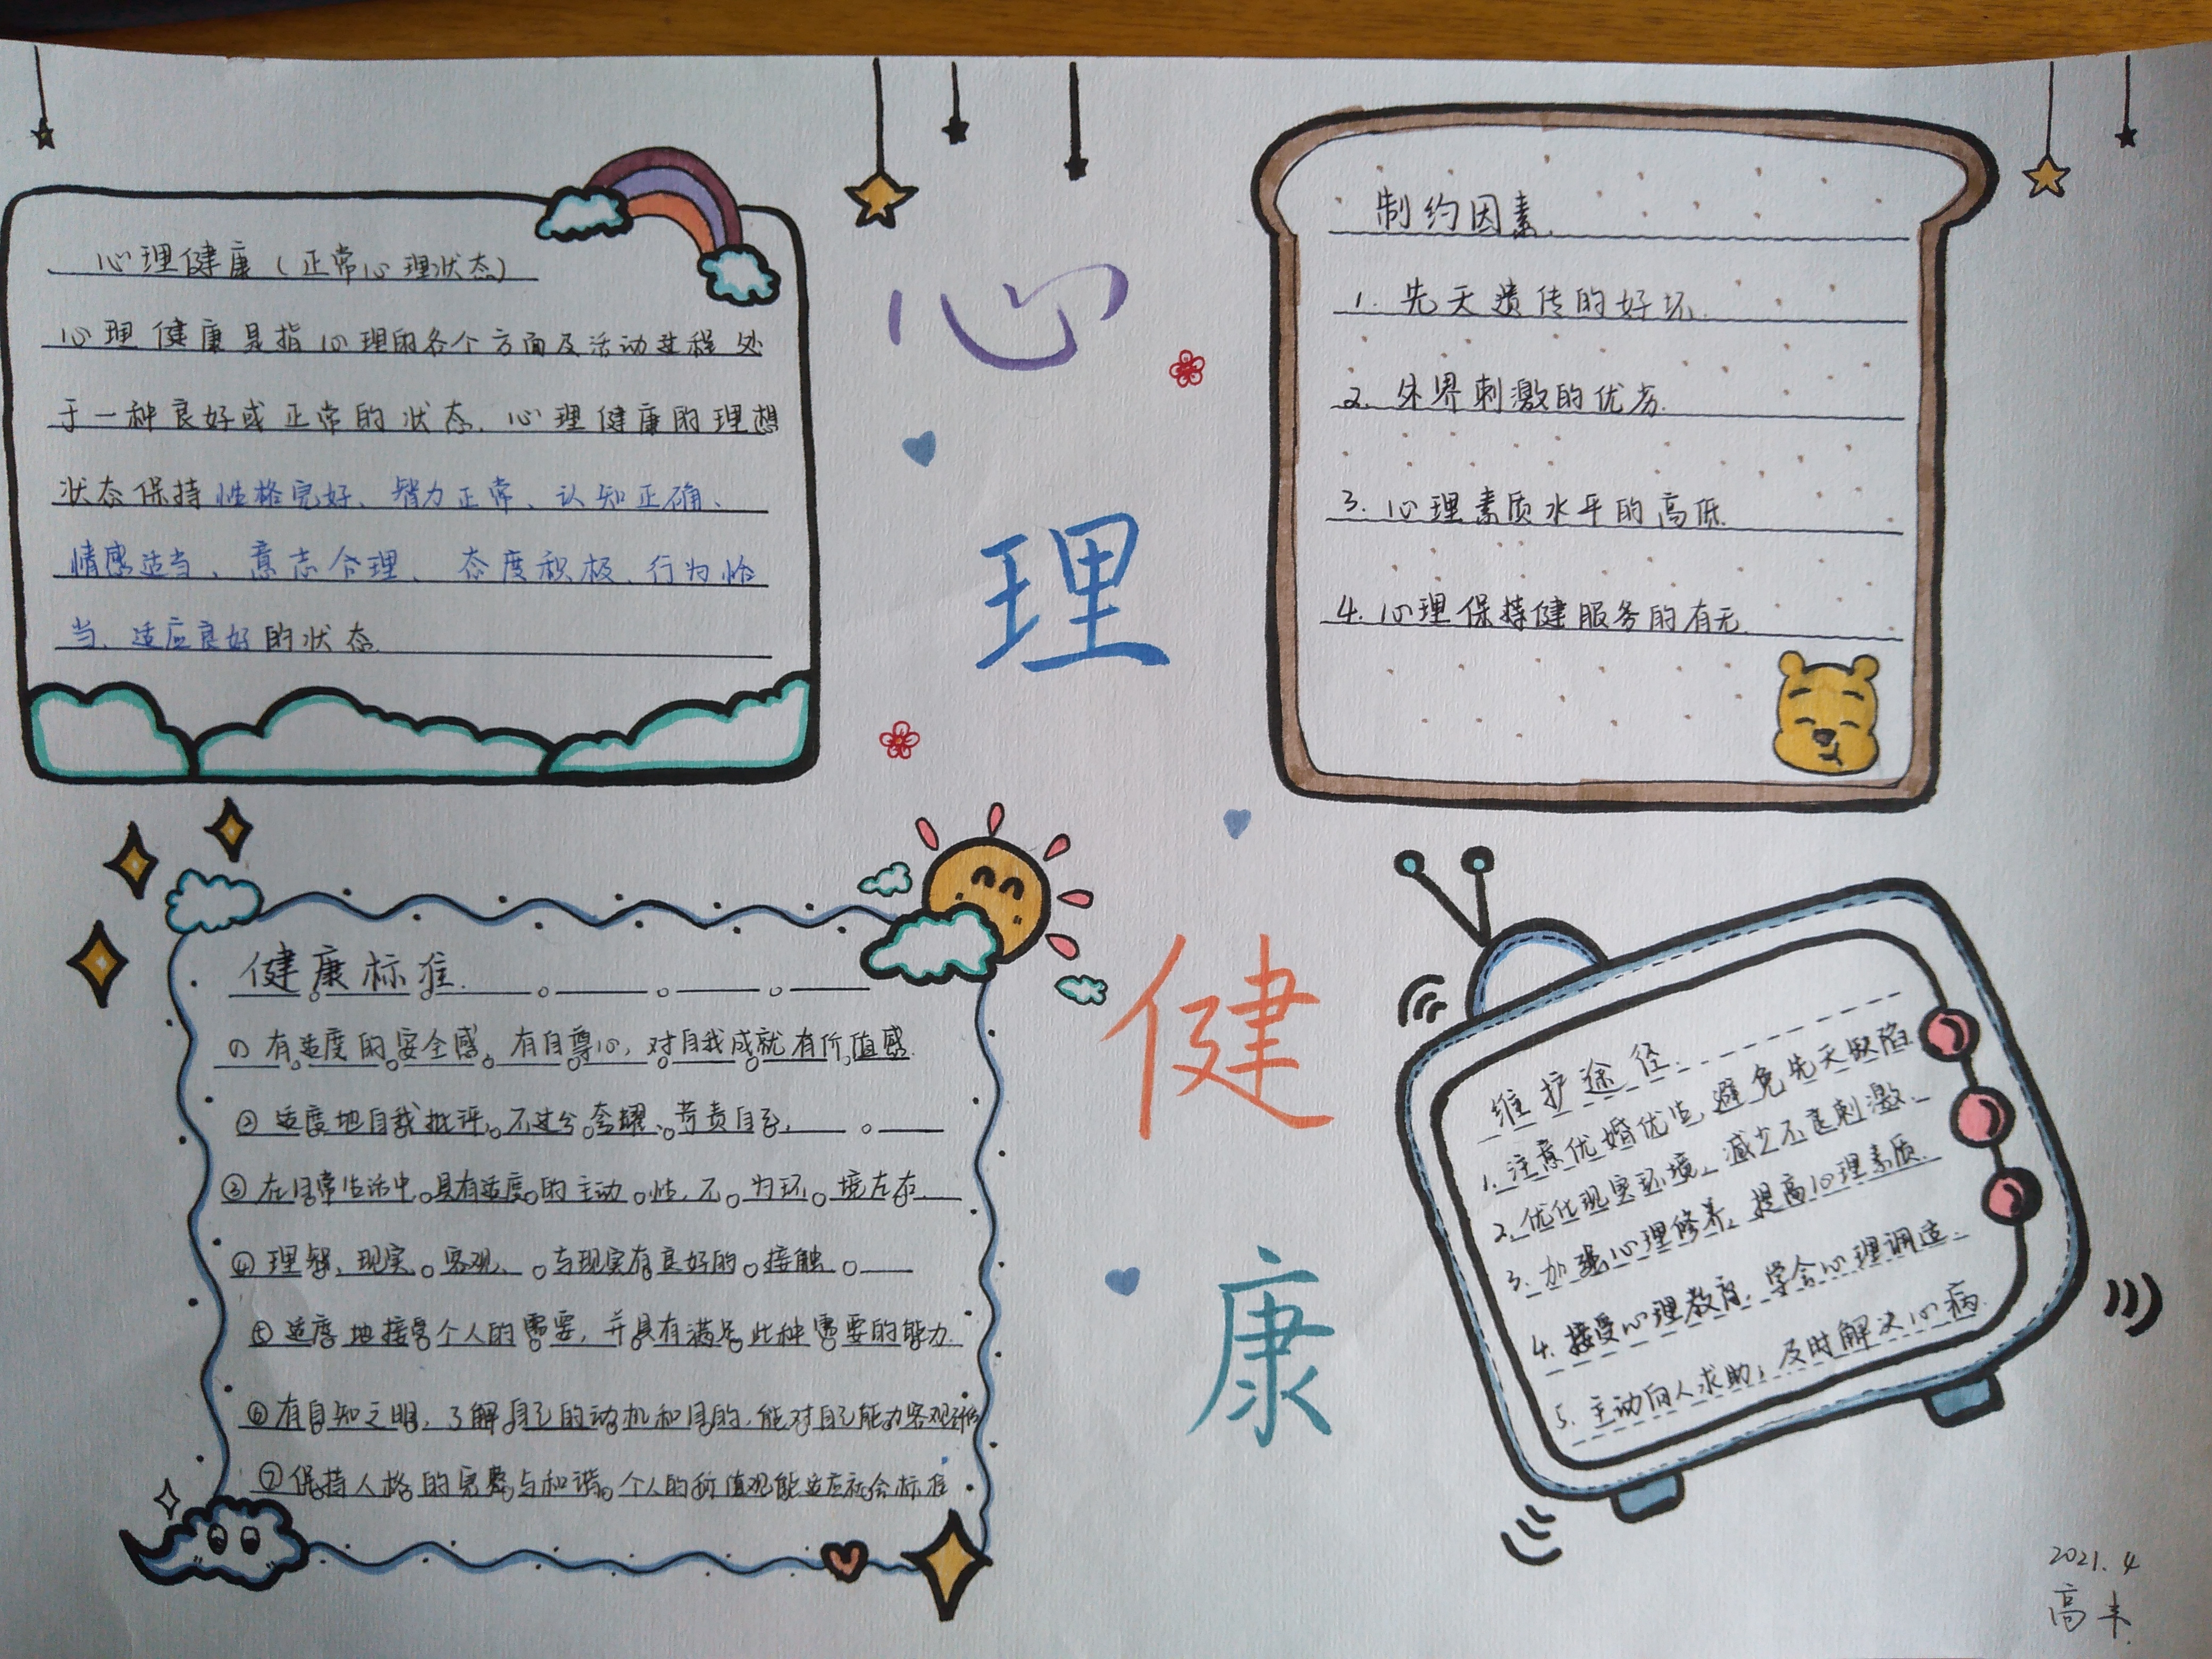 心理健康（正常心理状态）
心理健康是指心理的各个方面及活动过程处
于一种良好或正常的状态.心理健康的理想
状态保持性格完好、智力正常、认知正确、
情感适当、意志合理、态度积极、行为恰
当、适应良好的状态.
心
理
健
康
制约因素.
1. 先天遗传的好坏.
2. 外界刺激的优劣.
3. 心理素质水平的高低.
4. 心理保持健服务的有无.
健康标准.
有适度的安全感,有自尊心,对自我成就有价值感.
② 适度地自我批评,不过分夸耀、苛责自己.
③ 在日常生活中,具有适度的主动性,不为环境左右.
④ 理智、现实、客观、与现实有良好的接触
⑤ 适度地接受个人的需要,并具有满足此种需要的能力.
⑥ 有自知之明,了解自己的动机和目的,能对自己能力客观
⑦ 保持人格的完整与和谐,个人的价值观能适应社会标准
维护途径.
1. 注意优婚优生,避免先天缺陷.
2. 优化现实环境,减少不良刺激.
3. 加强心理修养,提高心理素质.
4. 接受心理教育,学会心理调适.
5. 主动向人求助,及时解决心病.
2021.4
高丰